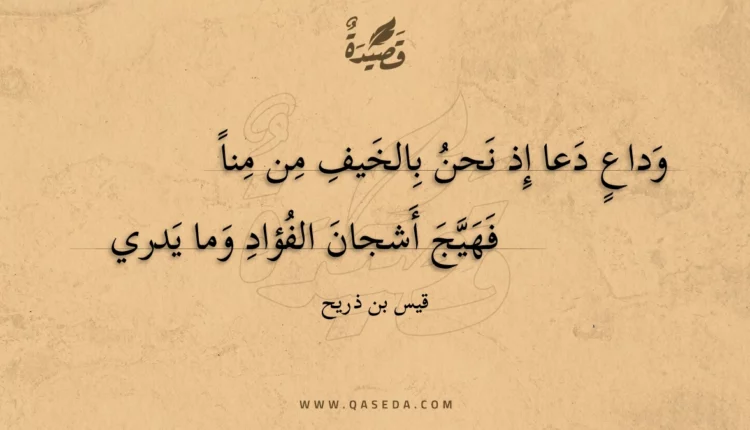 قَصِيْدَةٌ
وَداعٍ دَعا إِذ نَحنُ بِالخَيفِ مِن مِناً
فَهَيَّجَ أَشجانَ الفُؤادِ وَما يَدري
قيس بن ذريح
WWW.QASEDA.COM